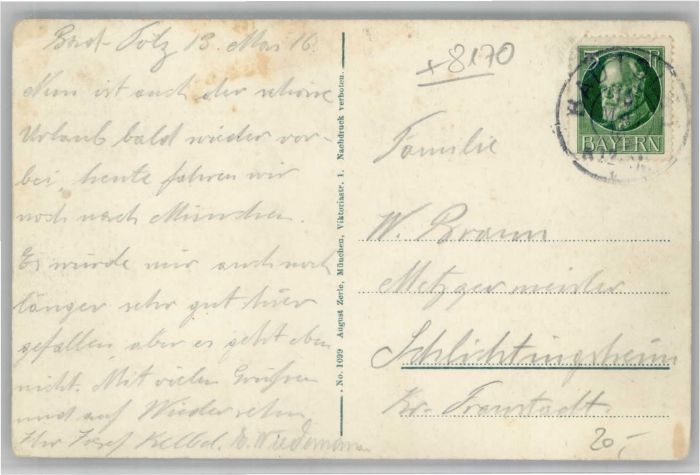 Bad-Tölz 13. Mai 16.
Nun ist auch der schöne
Urlaub bald wieder vor-
bei, heute fahren wir
noch nach München.
Es würde mir auch noch
länger sehr gut hier
gefallen, aber es geht eben
nicht. Mit vielen Grüßen
und auf Wiedersehen
Ihr Josef Kelbel. W. Wiedemann
No. 1099 August Zerle, München, Viktoriastr. 1. Nachdruck verboten.
+8170
5
BAYERN
Familie
W. Braun
Metzgermeister
Schlichtingsheim
Kr. Fraustadt.
20,-